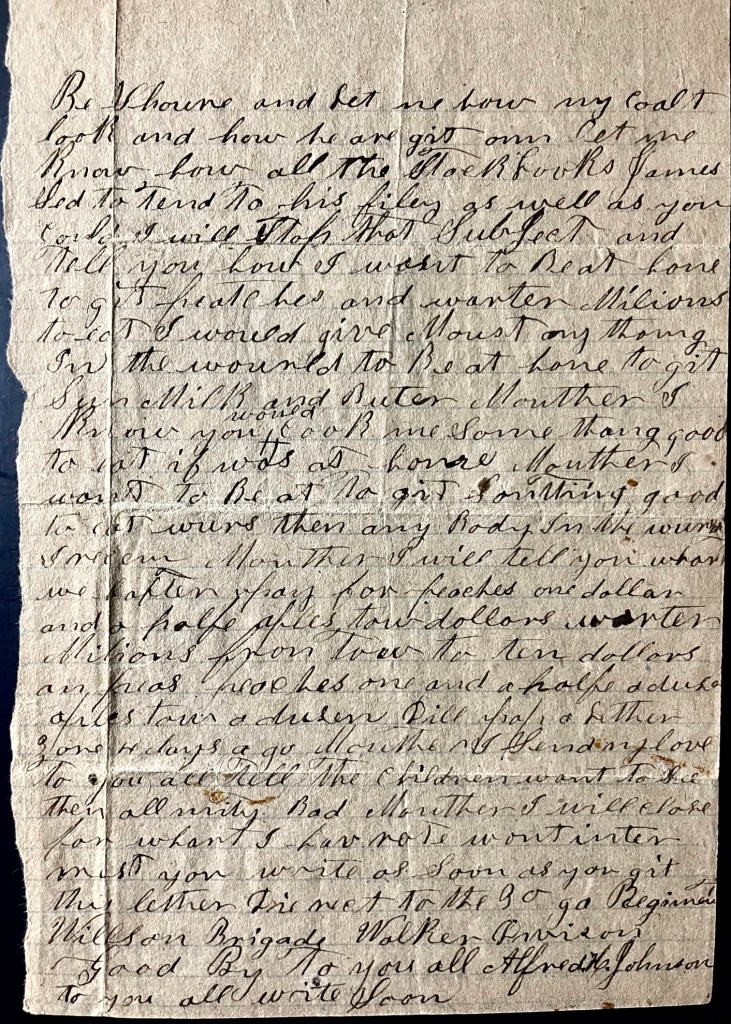 Be Shoure and let me how my Coalt
look and how he are git onn let me
Know how all the Stock looks James
Sed to tend to his filey as well as you
Could I will Stop that SubJect and
tell you how I want to Be at home
to git peatches and warter Milions
to eat I would give Moust any thong
In the wourld to Be at home to git
Sum Milk and Buter Mouther I
Know you would Cook me Some thang good
to eat if was at home Mouther I
want to Be at to git Somthing good
to eat wurs then any Body In the wurs
I recem Mouther I will tell you whart
we hafter pay for peaches one dollar
and a halfe aples tow dollars warter
Milions from tow to ten dollars
an peas peaches one and a halfe a dusen
aples tow a dusen Dill a lether
3 one days a go Mouther I Send my love
to you all Tell the Children want to See
them all mity Bad Mouther I will close
for whart I hav rote wont inter
rest you write as Soon as you git
this lether Direct to the 30 ga Regiment
Willson Brigade Walker Divison
Good By to you all Alfred H. Johnson
to you all write Soon